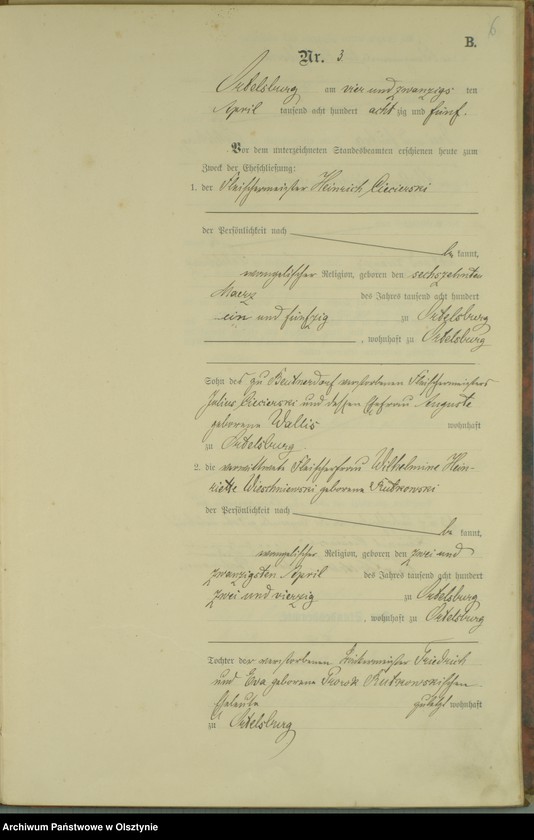 6
B.
Nr. 3.
Ortelsburg am vier und zwanzigs ten
April tausend acht hundert acht zig und fünf.
Vor dem unterzeichneten Standesbeamten erschienen heute zum
Zweck der Eheschließung:
1. der Fleischermeister Heinrich Ciecierski
der Persönlichkeit nach
be kannt,
evangelischer Religion, geboren den sechszehnten
Maerz des Jahres tausend acht hundert
ein und fünfzig zu Ortelsburg
, wohnhaft zu Ortelsburg
Sohn des zu Beutnerdorf verstorbenen Fleischermeisters
Julius Ciecierski und dessen Ehefrau Auguste
geborene Wallis wohnhaft
zu Ortelsburg.
2. die verwittwete Fleischerfrau Wilhelmine Hein-
riette Wieschniewski geborene Rutkowski
der Persönlichkeit nach
be kannt,
evangelischer Religion, geboren den zwei und
zwanzigsten April des Jahres tausend acht hundert
zwei und vierzig zu Ortelsburg
, wohnhaft zu Ortelsburg
Tochter der verstorbenen Friedrich
und Eva geborene Rutkowskischen
Eheleute zuletzt wohnhaft
zu Ortelsburg
Archiwum Państwowe w Olsztynie